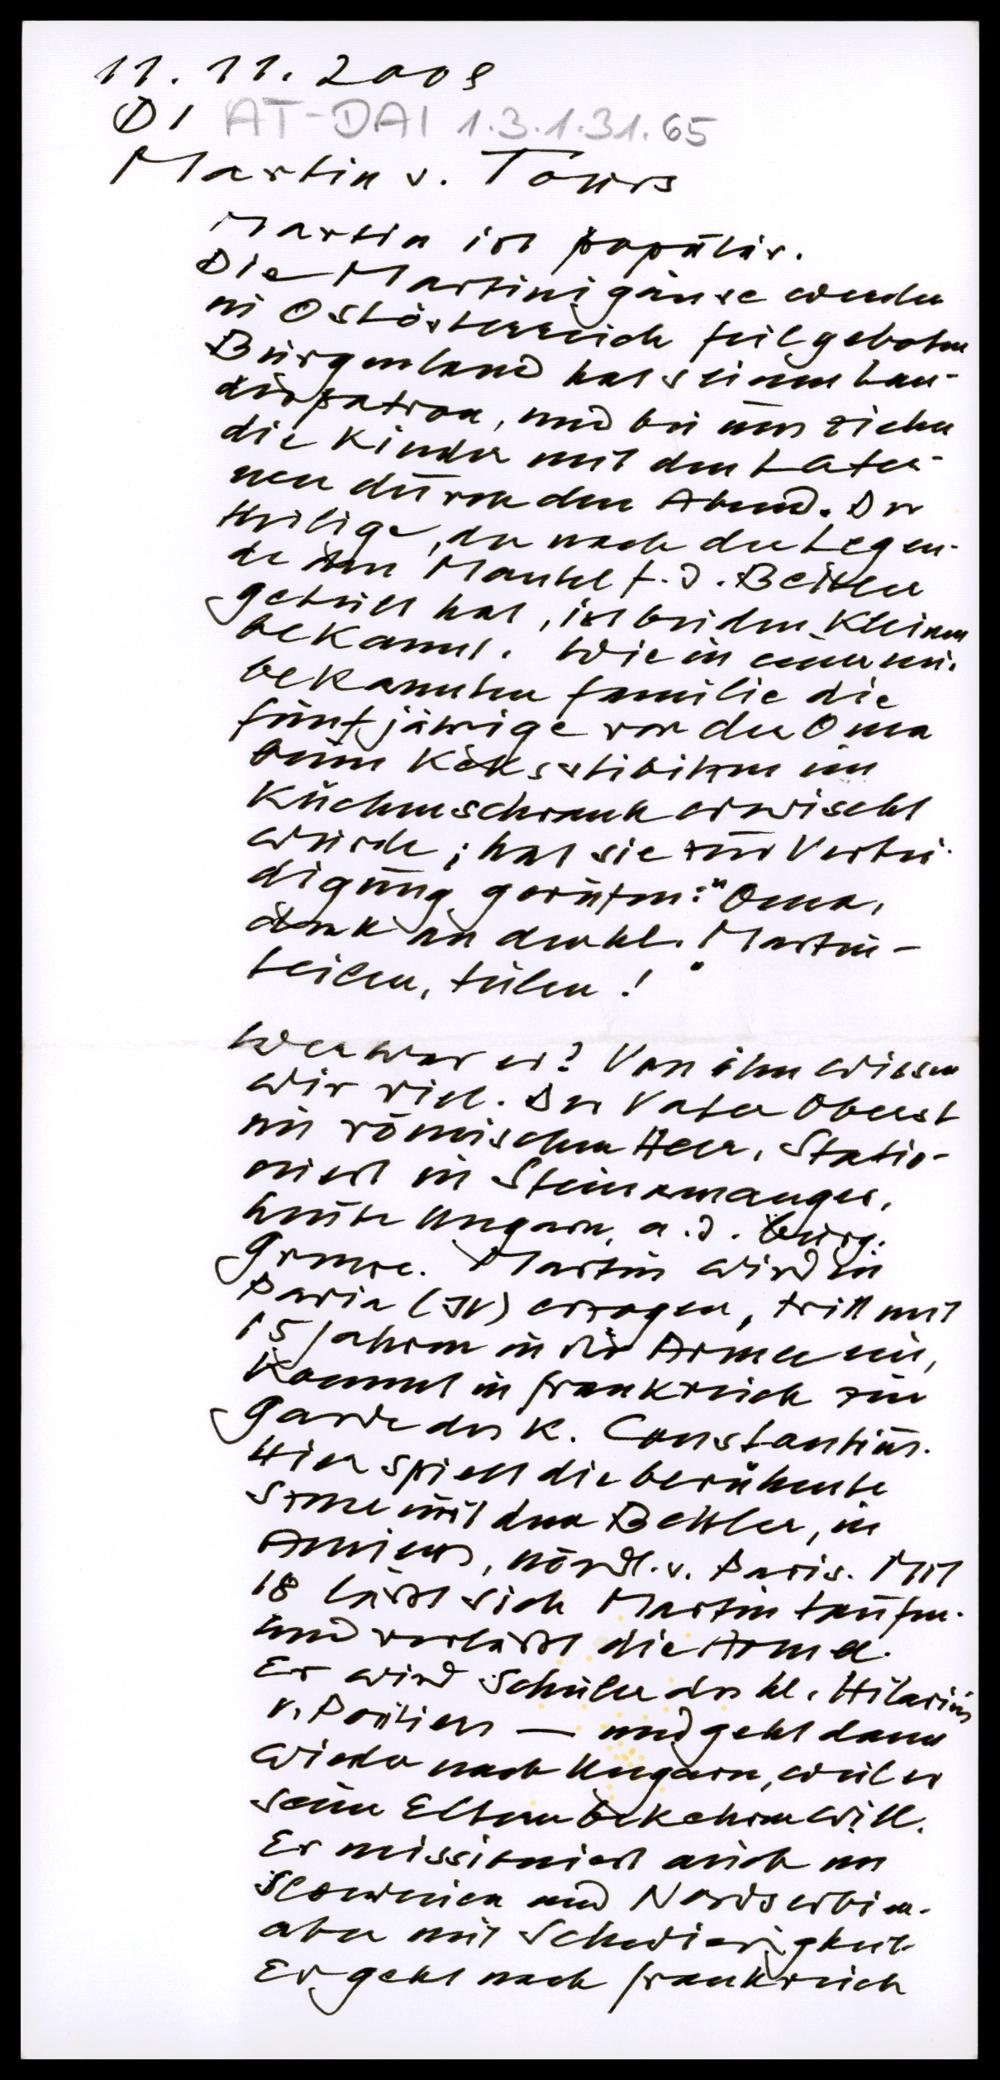 11.11.2008
DI AT-DAI 1.3.1.31.65
Martin v. Tours
Martin ist populär.
Die Martinigänse werden
in Ostösterreich feilgeboten
Burgenland hat seinen Lan-
despatron, und bei uns ziehen
die Kinder mit den Later-
nen durch den Abend. Der
Heilige, der nach der Legen-
de den Mantel f. d. Bettler
geteilt hat, ist bei den Kleinen
bekannt. Wie in einer mir
bekannten Familie die
fünfjährige von der Oma
beim Keksstibitzen im
Küchenschrank erwischt
wurde, hat sie zur Vertei-
digung gerufen: "Oma,
denk an den hl. Martin -
teilen, teilen!"
Wer war er? Von ihm wissen
wir viel. Der Vater Oberst
im römischen Heer, Statio-
niert in Steinamanger,
heute Ungarn, a. d. burg.
Grenze. Martin wird in
Pavia (It) erzogen, tritt mit
15 Jahren in die Armee ein,
kommt in Frankreich zur
Garde des K. Constantius.
Hier spielt die berühmte
Szene mit dem Bettler, in
Amiens, nördl. v. Paris. Mit
18 läßt sich Martin taufen
und verläßt die Armee.
Er wird Schüler des hl. Hilarius
v. Poitiers — und geht dann
wieder nach Ungarn, weil er
seine Eltern bekehren will.
Er missioniert auch in
Slowenien und Nordserbien.
aber mit Schwierigkeit.
Er geht nach Frankreich